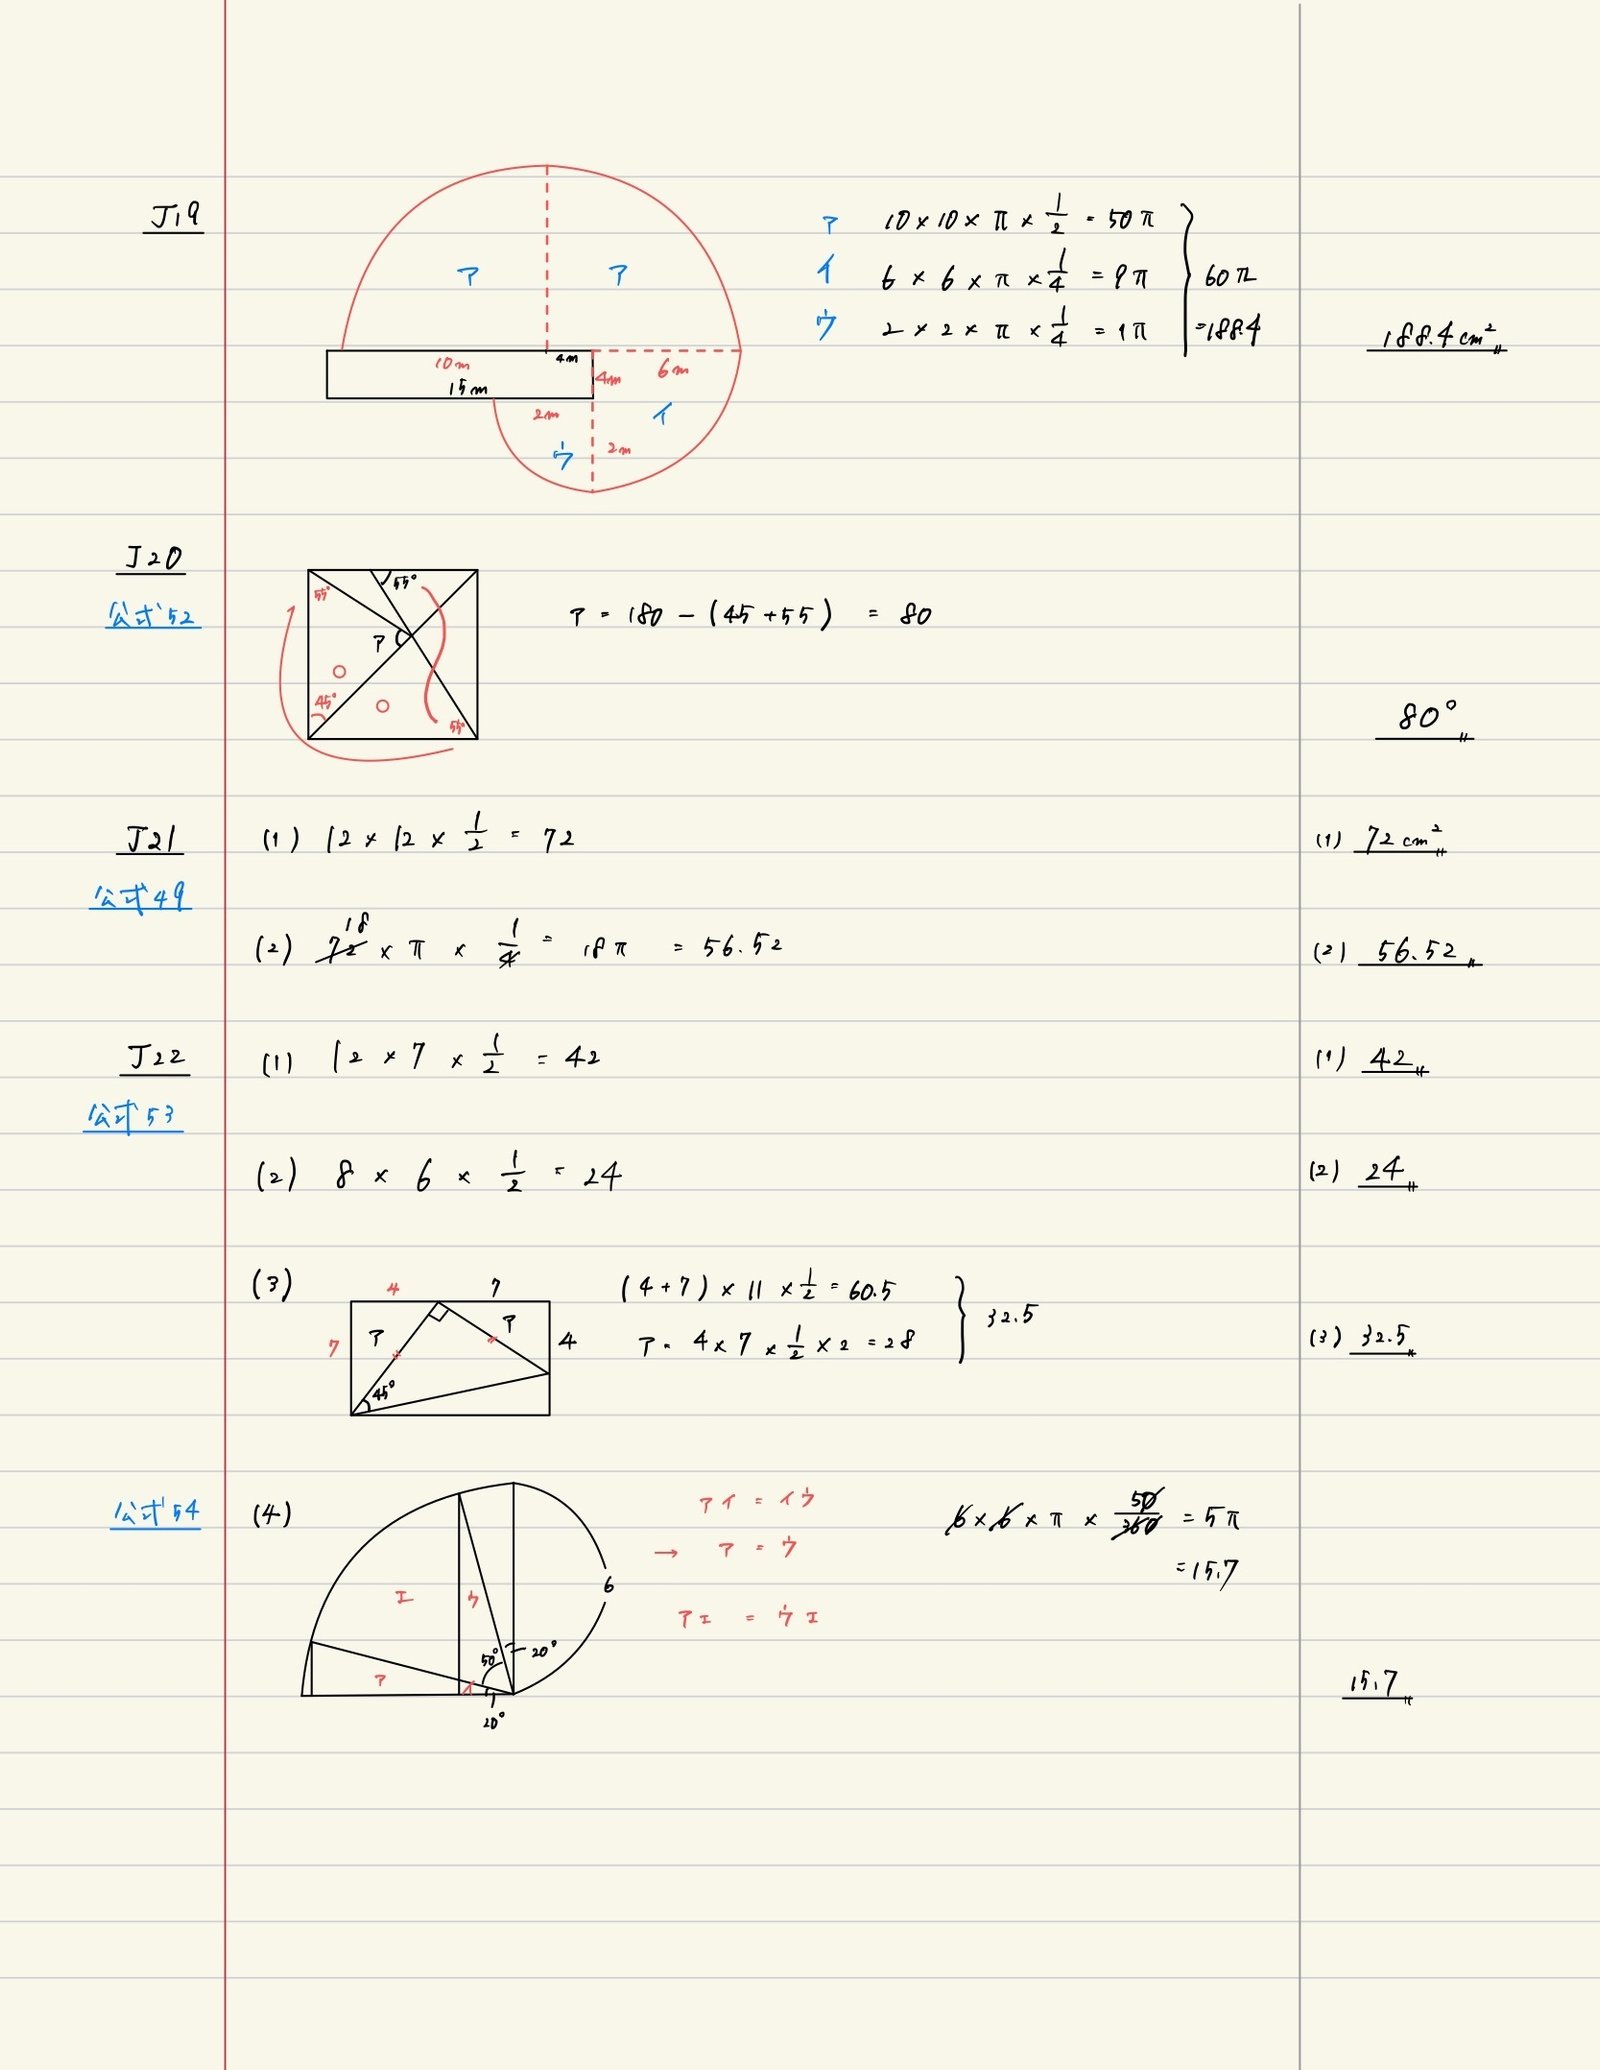 J19
ア ア
10m 4m
15m
4m 6m
2m イ
ウ 2m
ア 10×10×π×1/2 = 50π
イ 6×6×π×1/4 = 9π
ウ 2×2×π×1/4 = 1π
60π
=188.4
188.4cm²
J20
公式52
55° 55°
ア
45° 55°
ア = 180 - (45+55) = 80
80°
J21
公式49
(1) 12×12×1/2 = 72
(1) 72cm²
(2) 72 18 × π × 1/4 = 18π = 56.52
(2) 56.52
J22
公式53
(1) 12×7×1/2 = 42
(1) 42
(2) 8×6×1/2 = 24
(2) 24
(3)
4 7
7 ア ア 4
45°
(4+7)×11×1/2 = 60.5
ア = 4×7×1/2×2 = 28
32.5
(3) 32.5
公式54
(4)
エ ウ 6
50° 20°
ア イ
20°
アイ = イウ
→ ア = ウ
アエ = ウエ
6×6×π×50/360 = 5π
=15.7
15.7